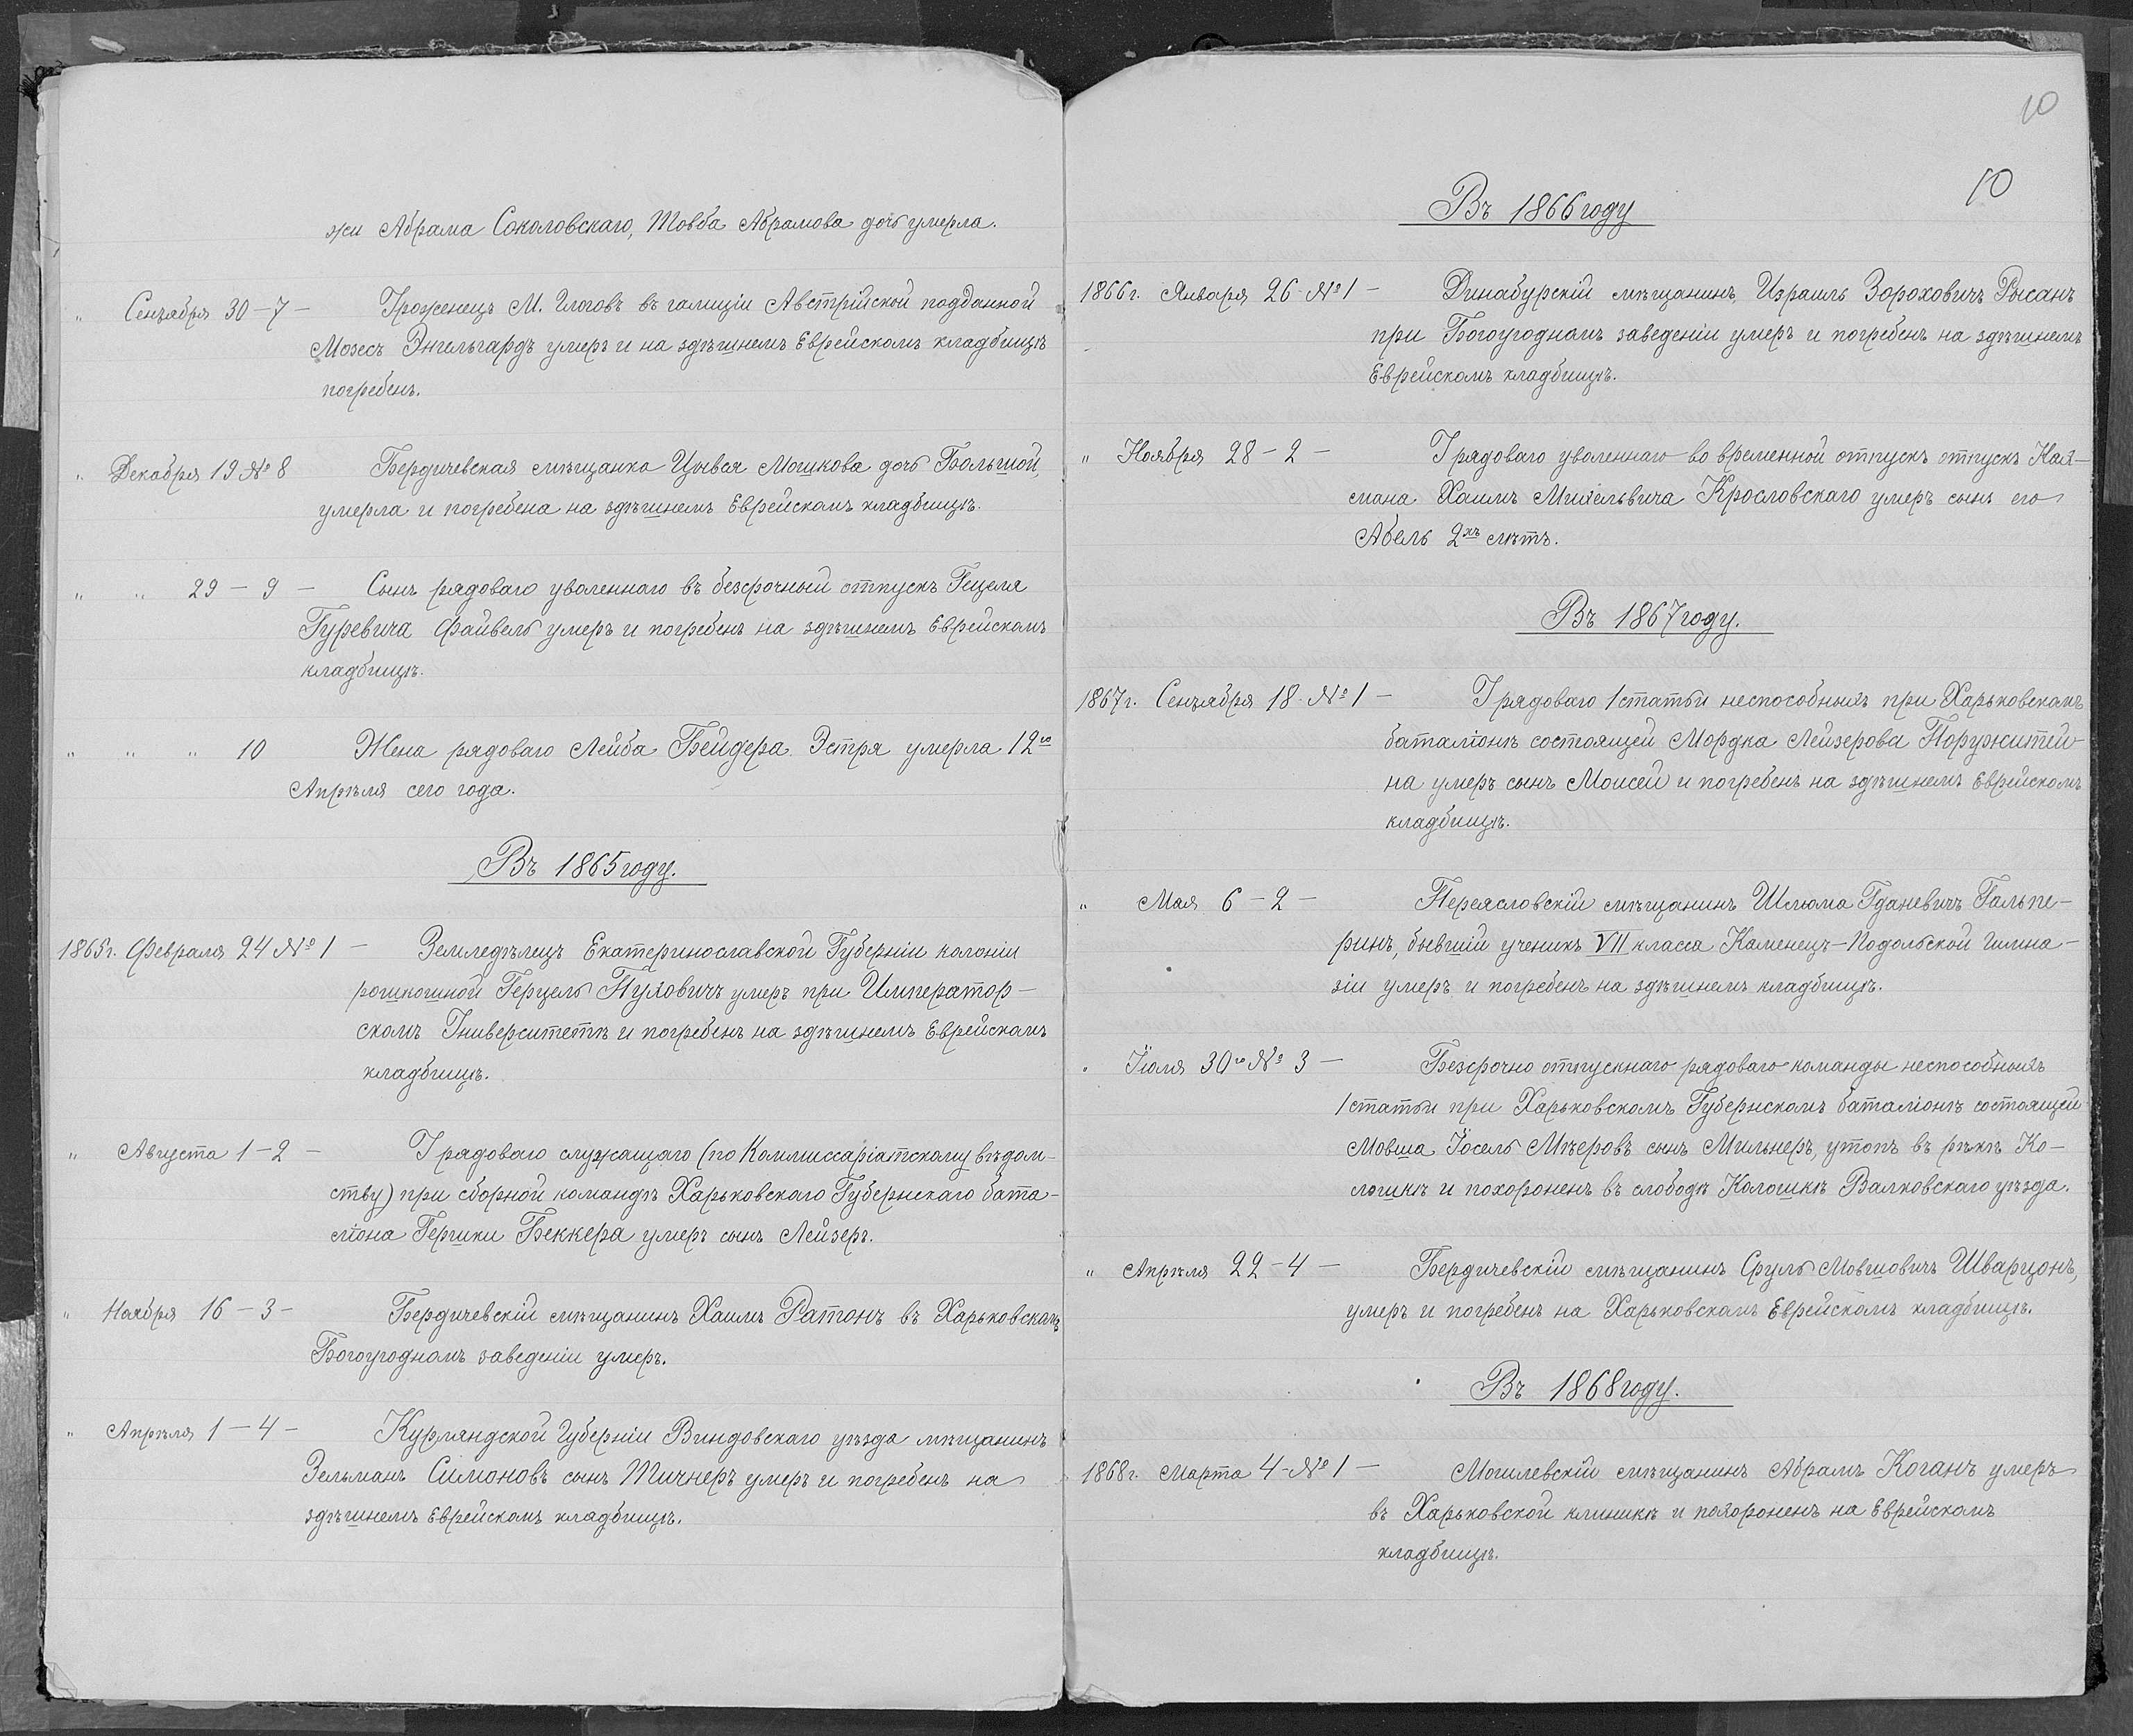 жи Абрама Соколовскаго, Товба Абрамова дочь умерла.
" Сентября 30 – 7 – Уроженецъ М. Глоговъ въ галиціи Австрійской подданной
Мозесъ Энгельгардъ умеръ и на здѣшнемъ Еврейскомъ кладбищѣ
погребенъ.
" Декабря 19 № 8 Бердичевская мѣщанка Цывья Мошкова дочь Большой,
умерла и погребена на здѣшнемъ Еврейскомъ кладбищѣ.
" " 29 – 9 – Сынъ рядоваго уволеннаго въ безсрочный отпускъ Гецеля
Гуревича Файвель умеръ и погребенъ на здѣшнемъ Еврейскомъ
кладбищѣ.
" " " 10 Жена рядоваго Лейба Бейдера Эстра умерла 12го
Апрѣля сего года.
Въ 1865 году.
1865г. Февраля 24 № 1 – Земледѣлецъ Екатеринославской Губерніи колоніи
Герцель Пулович умеръ при Император-
скомъ Университетѣ и погребенъ на здѣшнемъ Еврейскомъ
кладбищѣ.
" Августа 1 – 2 – У рядоваго служащаго (по Коммиссаріатскому вѣдом-
ству) при сборной командѣ Харьковскаго Губернскаго бата-
ліона Гершки Беккера умеръ сынъ Лейзеръ.
" Ноября 16 – 3 – Бердичевскій мѣщанинъ Хаимъ Ратонъ въ Харьковскомъ
Богоугодномъ заведеніи умеръ.
" Апрѣля 1 – 4 – Курляндской Губерніи Виндовскаго уѣзда мѣщанинъ
Зельманъ Симоновъ сынъ Тичнеръ умеръ и погребенъ на
здѣшнемъ Еврейскомъ кладбищѣ.
10
10
Въ 1866 году
1866г. Января 26 № 1 – Динабурскій мѣщанинъ Израиль Зороховичъ Рысанъ
при Богоугодномъ заведеніи умеръ и погребенъ на здѣшнемъ
Еврейскомъ кладбищѣ.
" Ноября 28 – 2 – У рядоваго уволеннаго во временной отпускъ отпускъ Ная-
мана Хаимъ Михельвича Крословскаго умеръ сынъ его
Абель 2хъ лѣтъ.
Въ 1867 году.
1867г. Сентября 18 № 1 – У рядоваго 1 статьи неспособныхъ при Харьковскомъ
баталіонѣ состоящей Мордка Лейзерова Поружитей-
на умеръ сынъ Моисей и погребенъ на здѣшнемъ Еврейскомъ
кладбищѣ.
" Мая 6 – 2 – Переясловскій мѣщанинъ Шлюма Гданевичъ Гальпе-
ринъ, бывшій ученикъ VII класса Каменецъ-Подольской Гимна-
зіи умеръ и погребенъ на здѣшнемъ кладбищѣ.
" Іюля 30го № 3 – Безсрочно отпускнаго рядоваго команды неспособныхъ
1 статьи при Харьковскомъ Губернскомъ баталіонѣ состоящей
Мовша Іосель Мѣеровъ сынъ Мильнеръ, утопъ въ рѣкѣ Ко-
лошкѣ и похороненъ въ слободѣ Колошкѣ Валковскаго уѣзда.
" Апрѣля 22 – 4 – Бердичевскій мѣщанинъ Сруль Мовшовичъ Шварцонъ,
умеръ и погребенъ на Харьковскомъ Еврейскомъ кладбищѣ.
Въ 1868 году.
1868г. Марта 4 – № 1 – Могилевскій мѣщанинъ Абрамъ Коганъ умеръ
въ Харьковской клиникѣ и похороненъ на Еврейскомъ
кладбищѣ.